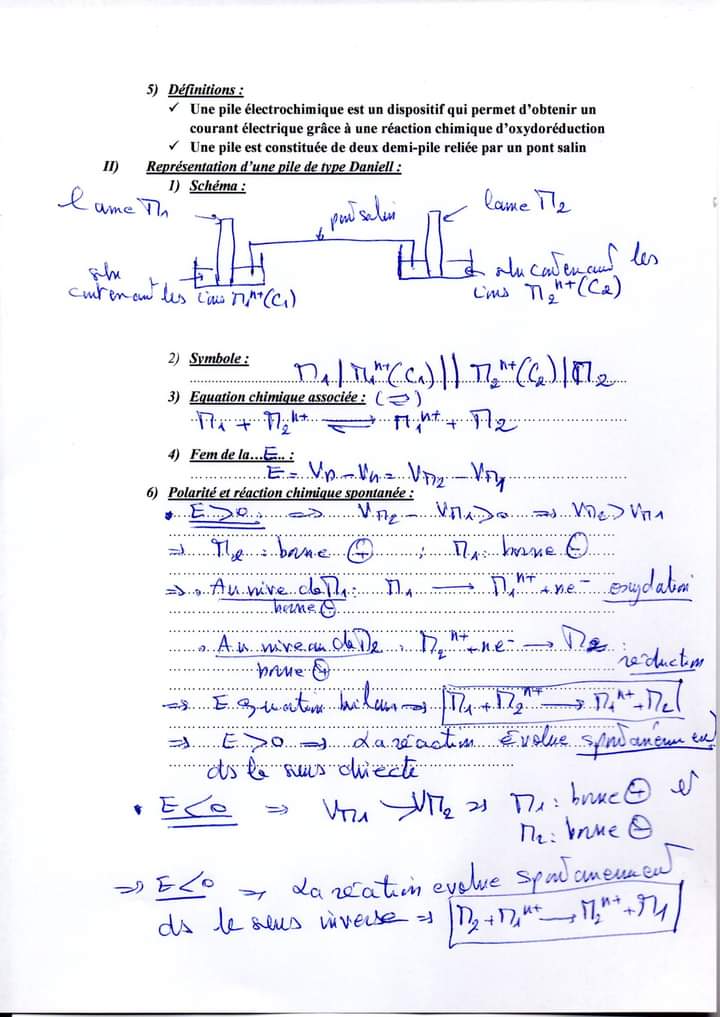 5) Définitions :
✓ Une pile électrochimique est un dispositif qui permet d'obtenir un
courant électrique grâce à une réaction chimique d'oxydoréduction
✓ Une pile est constituée de deux demi-pile reliée par un pont salin
II) Représentation d'une pile de type Daniell :
1) Schéma :
lame M1
pont salin
lame M2
soln
contenant les ions M1ⁿ⁺(C1)
soln contenant les
ions M2ⁿ⁺(C2)
2) Symbole :
M1 | M1ⁿ⁺(C1) || M2ⁿ⁺(C2) | M2
3) Equation chimique associée : (⇌)
M1 + M2ⁿ⁺ ⇌ M1ⁿ⁺ + M2
4) Fem de la...E.. :
E = VD - VG = VM2 - VM1
6) Polarité et réaction chimique spontanée :
• E>0 : ⇒ VM2 - VM1>0 ⇒ VM2>VM1
⇒ M2 : borne ⊕ ; M1 : borne ⊖
⇒ Au niveau de M1 : M1 → M1ⁿ⁺ + ne⁻ oxydation
borne ⊖
Au niveau de M2 : M2ⁿ⁺ + ne⁻ → M2 :
réduction
borne ⊕
⇒ Equation bilan ⇒ M1 + M2ⁿ⁺ → M1ⁿ⁺ + M2
⇒ E>0 ⇒ La réaction évolue spontanément
ds le sens directe
• E<0 ⇒ VM1 > VM2 ⇒ M1 : borne ⊕ et
M2 : borne ⊖
⇒ E<0 ⇒ La réation evolue spontanement
ds le sens inverse ⇒ M2 + M1ⁿ⁺ → M2ⁿ⁺ + M1